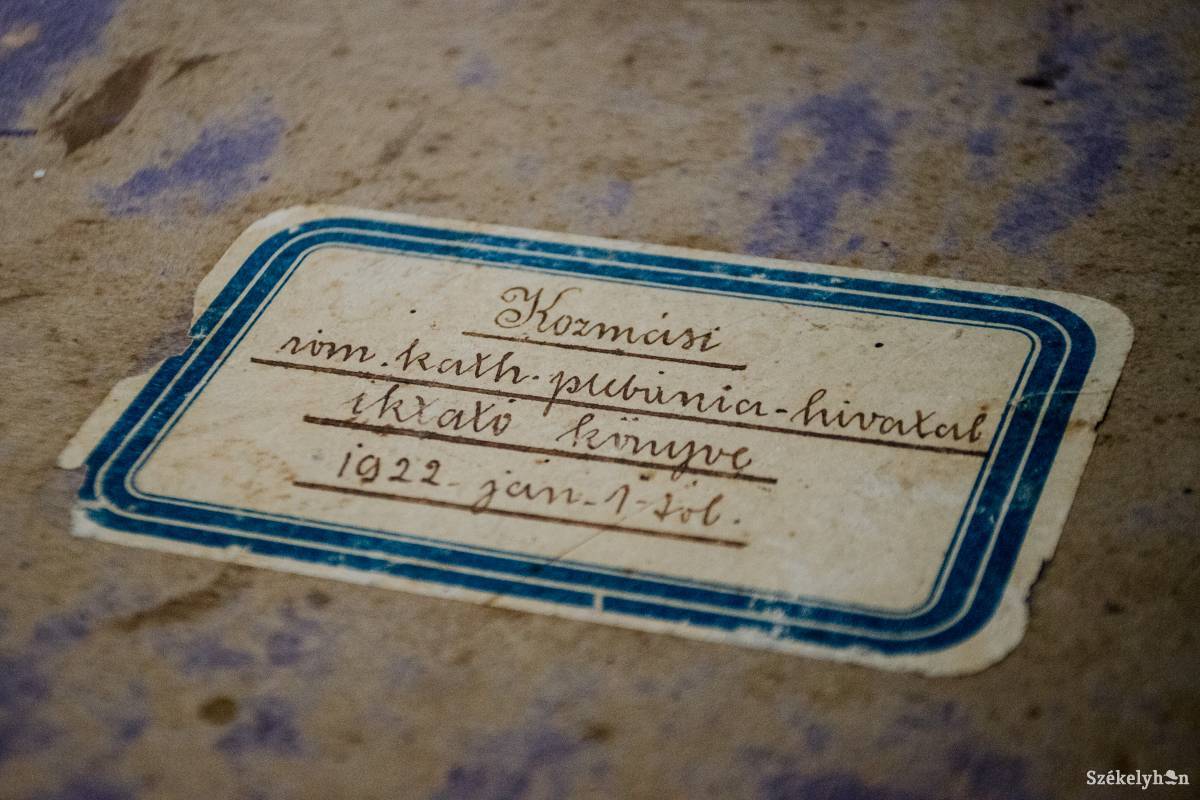 Kozmási
róm. kath. plebánia-hivatal
iktató könyve
1922. ján. 1-től.
Székelyhon